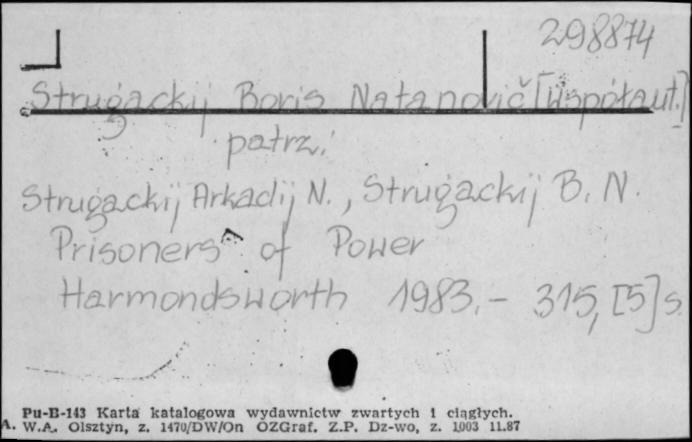 298874
Strugackij Boris Natanovič [współaut.]
patrz:
Strugackij Arkadij N., Strugackij B. N.
Prisoners of Power
Harmondsworth 1983. – 315, [5] s.
Pu-B-143 Karta katalogowa wydawnictw zwartych i ciągłych.
A. W.A. Olsztyn, z. 1470/DW/On OZGraf. Z.P. Dz-wo, z. 1003 11.87